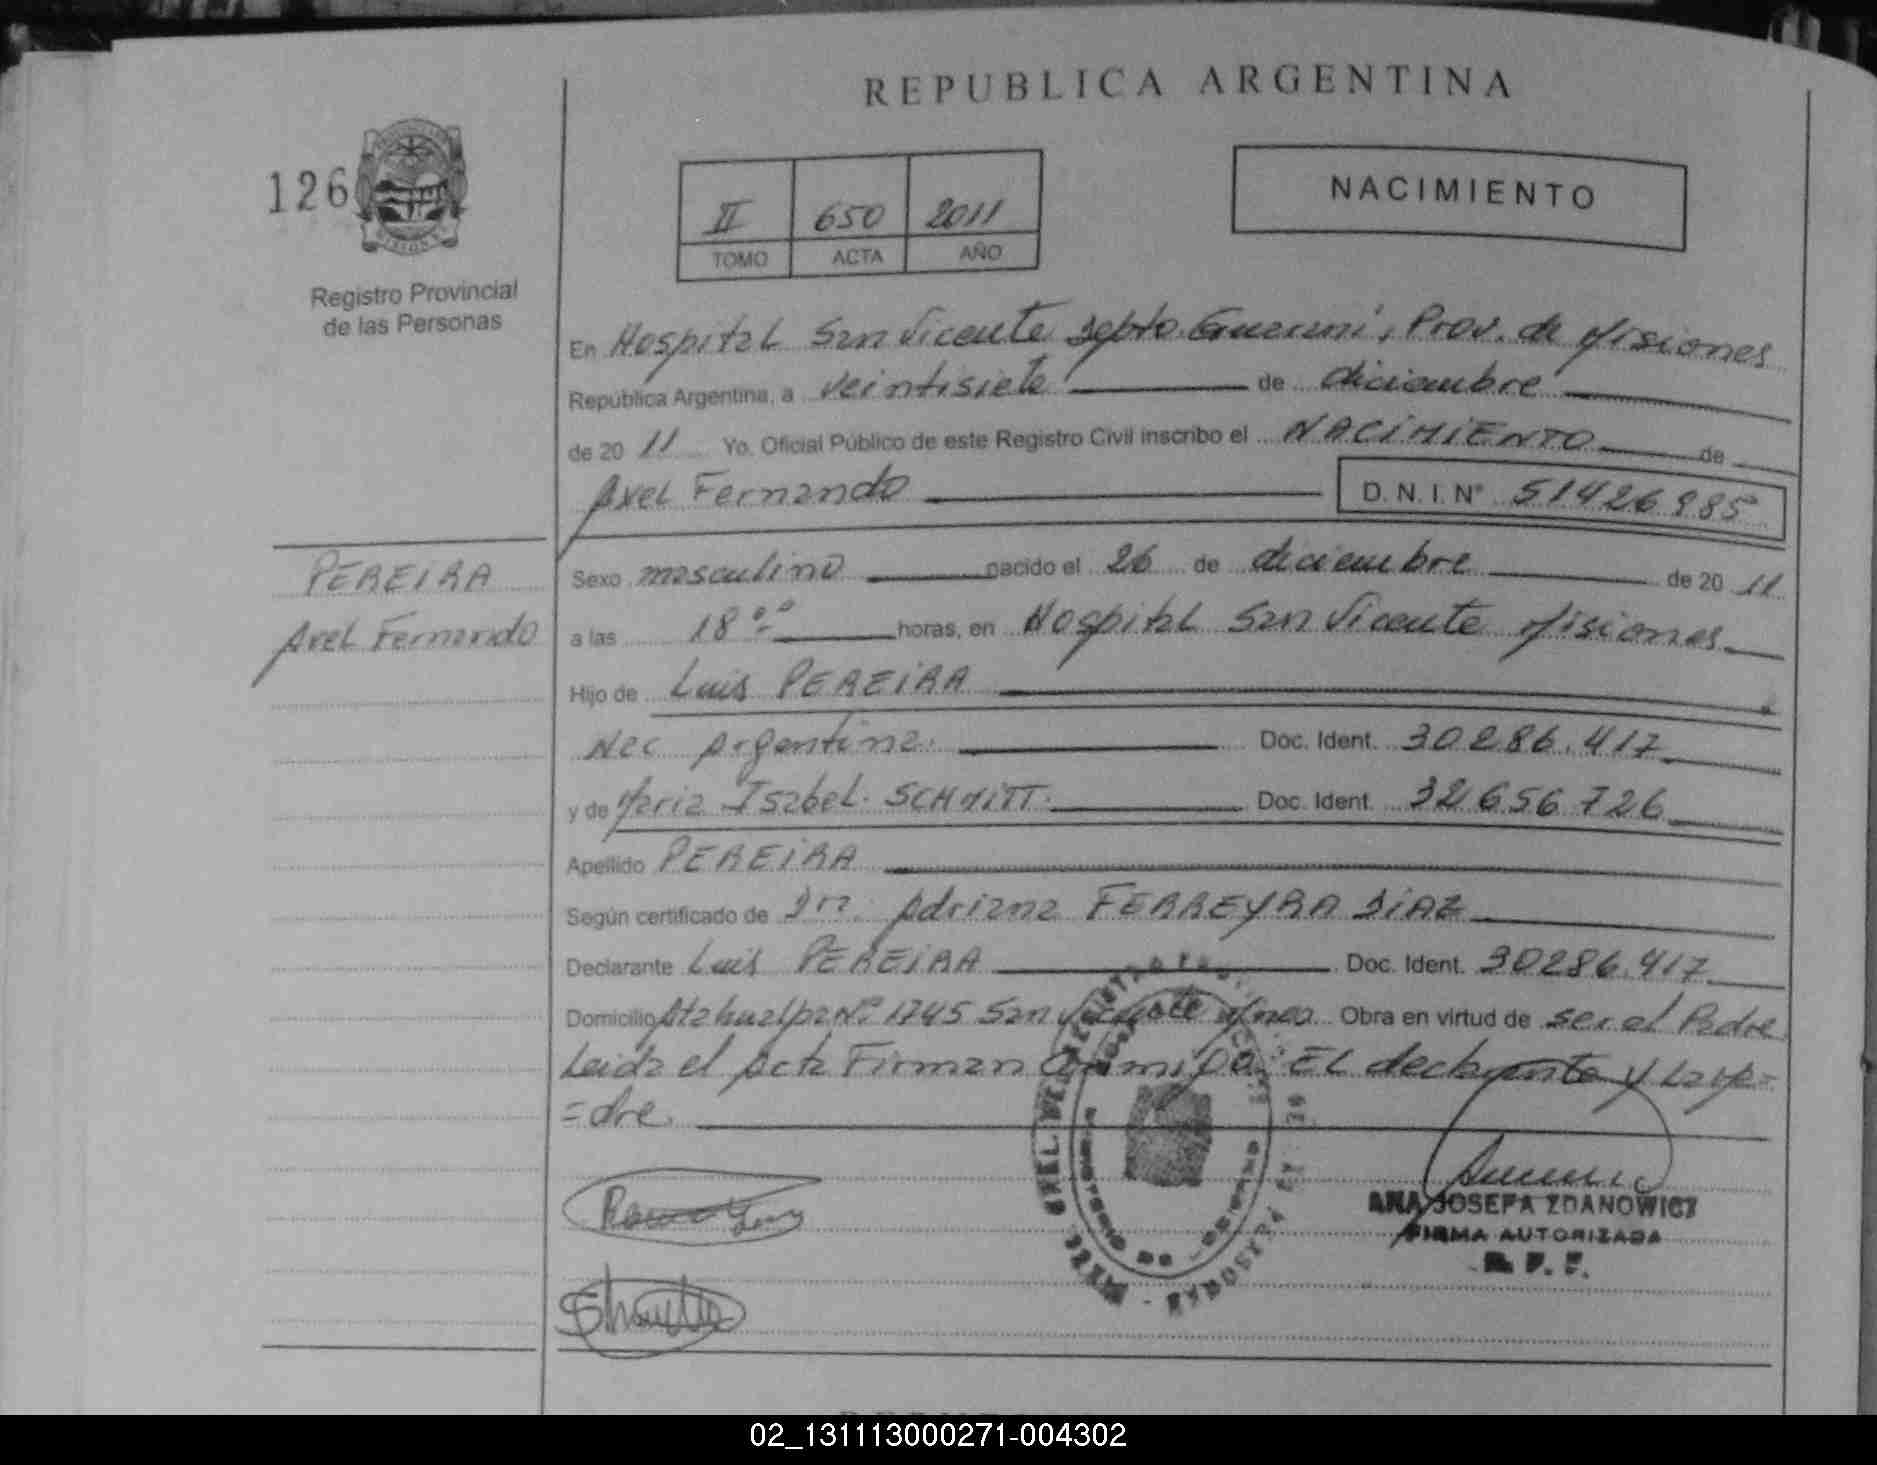 REPUBLICA ARGENTINA
126
Registro Provincial
de las Personas
II 650 2011
TOMO ACTA AÑO
NACIMIENTO
En Hospital San Vicente Depto. Guarani, Prov. de Misiones
República Argentina, a veintisiete de diciembre
de 20 11 Yo, Oficial Público de este Registro Civil inscribo el NACIMIENTO de
Axel Fernando D.N.I. Nº 51426985
PEREIRA
Axel Fernando
Sexo masculino nacido el 26 de diciembre de 20 11
a las 18 00 horas, en Hospital San Vicente Misiones
Hijo de Luis PEREIRA
Nac Argentina. Doc. Ident. 30286.417
y de Maria Isabel. SCHMITT. Doc. Ident. 32656726
Apellido PEREIRA
Según certificado de Dra. Adriana FERREYRA DIAZ
Declarante Luis PEREIRA Doc. Ident. 30286.417
Domicilio Atahualpa Nº 1745 San Vicente Mnes Obra en virtud de ser el Padre
Leida el Acta Firman Conmigo El declarante y La Ma=
=dre.
ANA JOSEFA ZDANOWICZ
FIRMA AUTORIZADA
R. P. P.
02_131113000271-004302